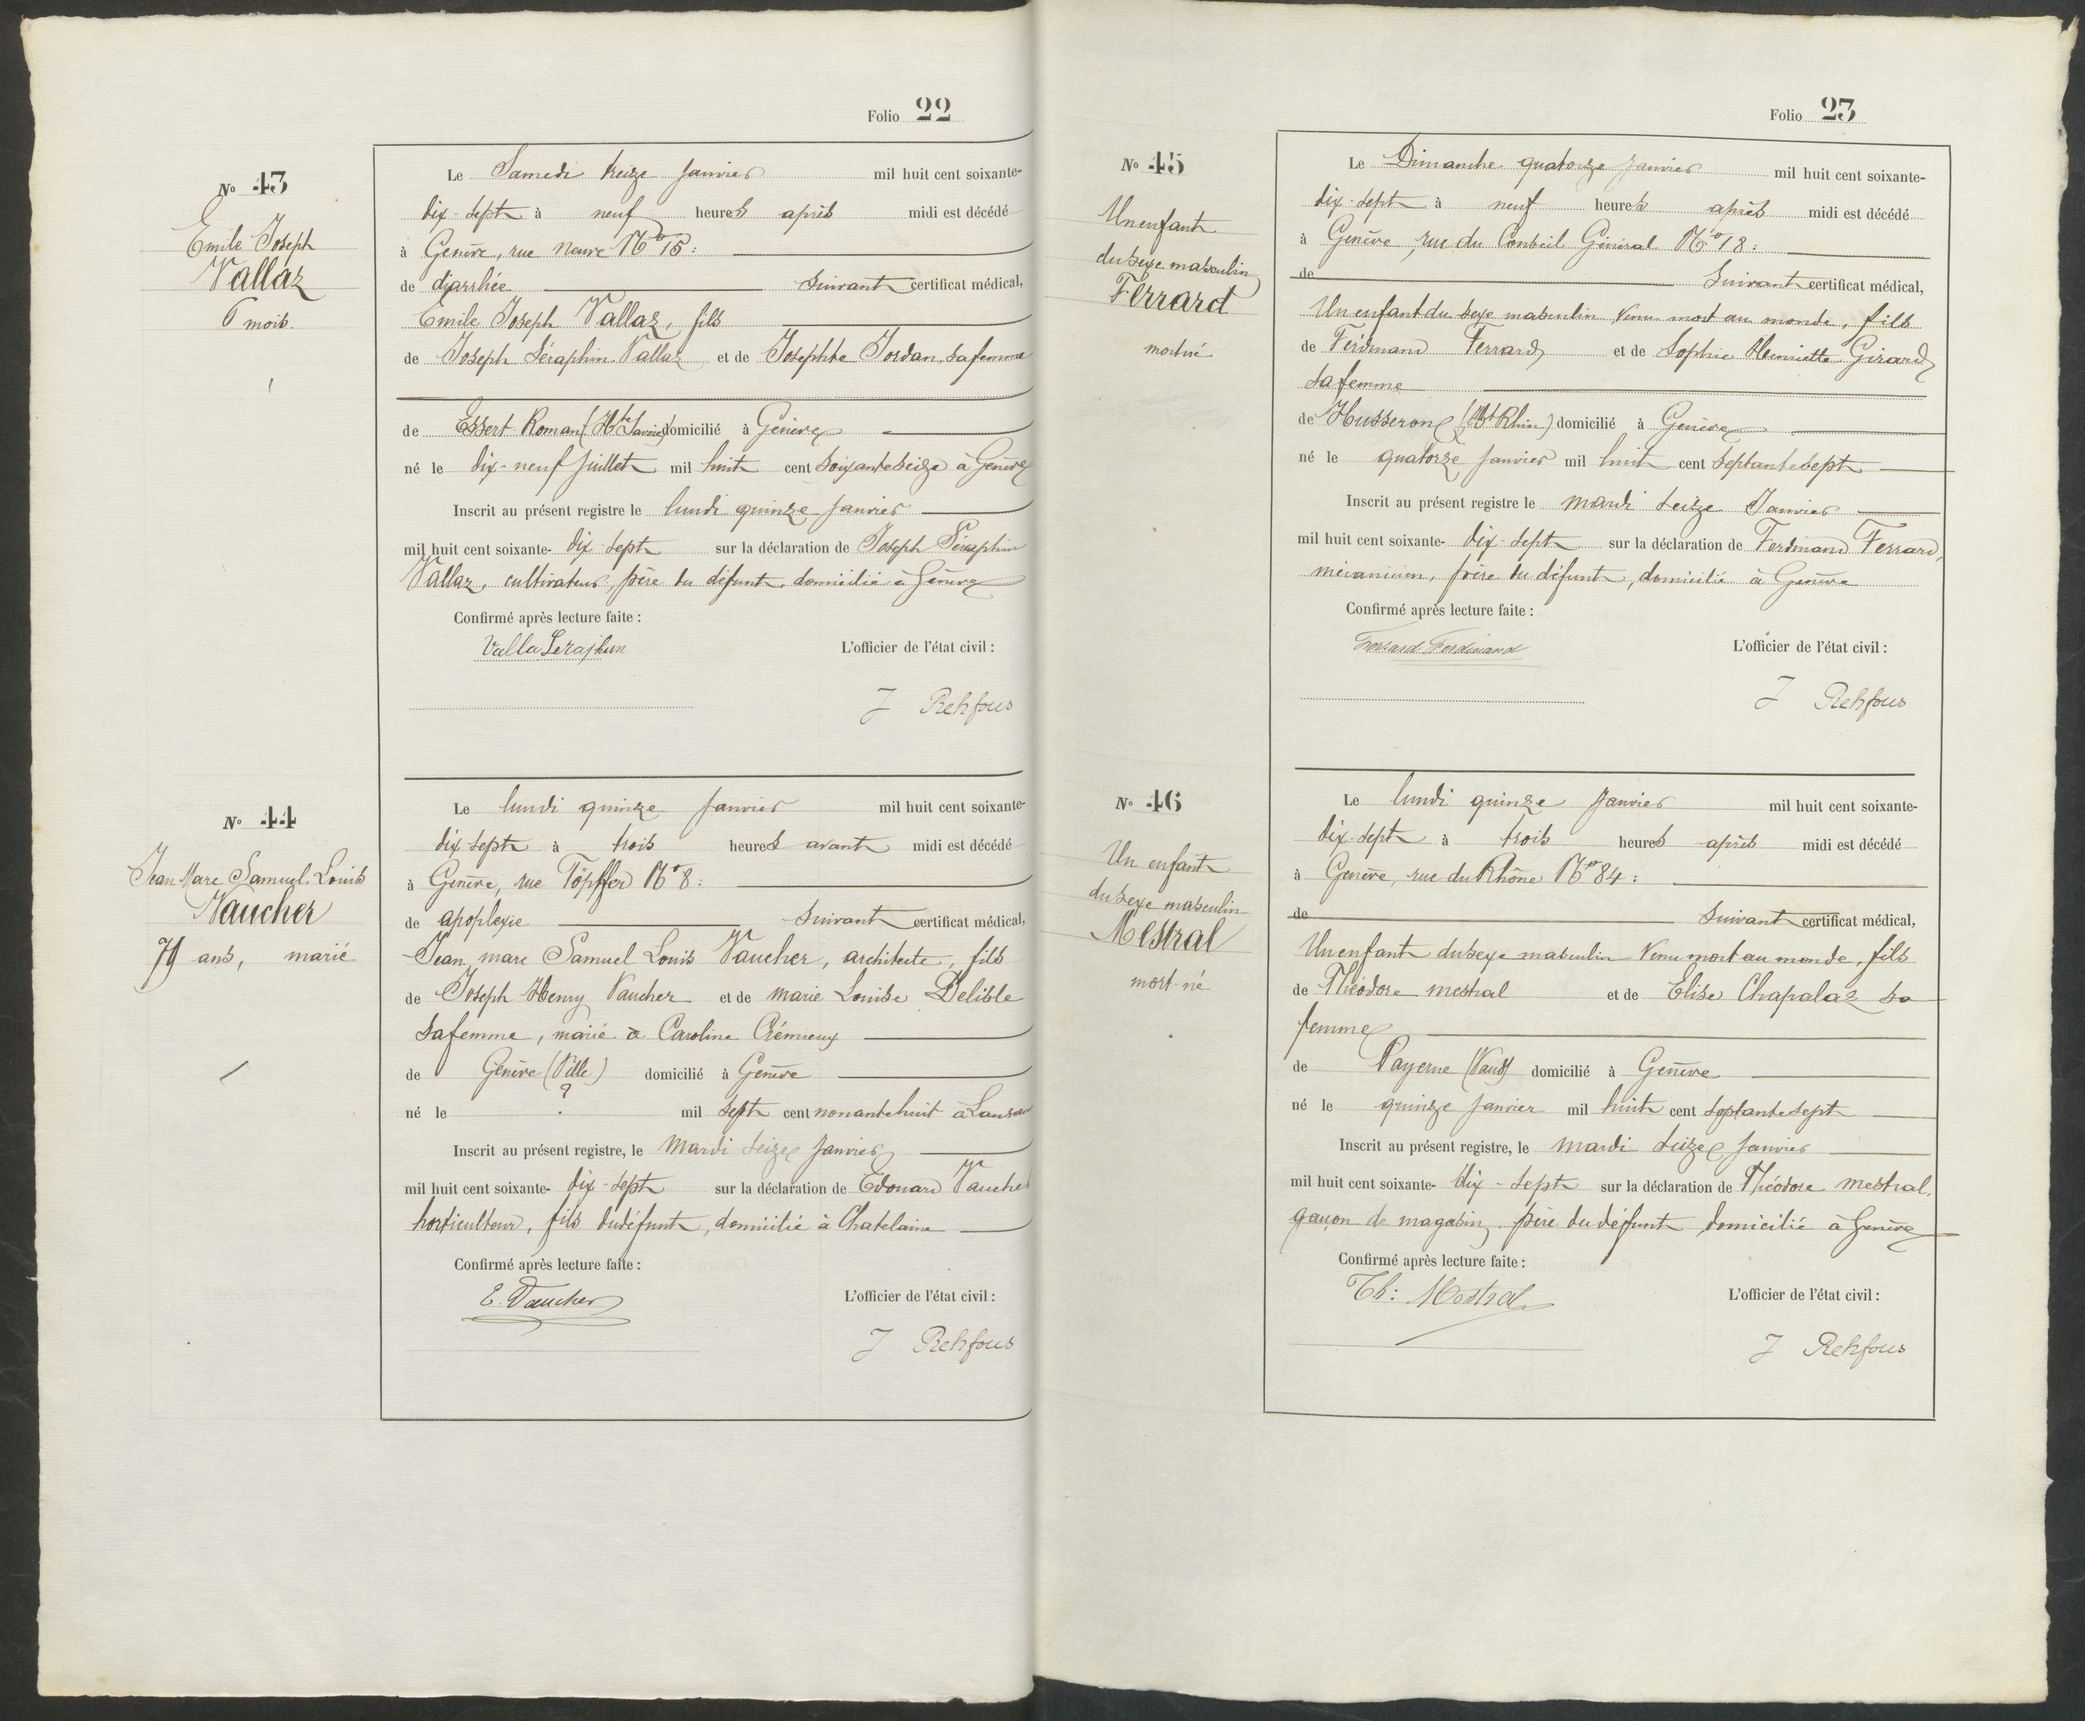 Folio 22
No 43
Emile Joseph
Vallaz
6 mois.
Le Samedi treize Janvier mil huit cent soixante-
dix-sept à neuf heures après midi est décédé
à Genève, rue Neuve No 15:
de diarrhée suivant certificat médical,
Emile Joseph Vallaz, fils
de Joseph Séraphin Vallaz et de Josephte Jordan, sa femme
de Essert-Roman (Hte Savoie) domicilié à Genève
né le dix-neuf Juillet mil huit cent soixante seize à Genève
Inscrit au présent registre le lundi quinze Janvier
mil huit cent soixante- dix-sept sur la déclaration de Joseph Séraphin
Vallaz, cultivateur, père du défunt, domicilié à Genève
Confirmé après lecture faite :
Valla Seraphin
L'officier de l'état civil :
J Rehfous
No 44
Jean Marc Samuel Louis
Vaucher
79 ans, marié
Le lundi quinze Janvier mil huit cent soixante-
dix-sept à trois heures avant midi est décédé
à Genève, rue Töpffer No 8:
de apoplexie suivant certificat médical,
Jean Marc Samuel Louis Vaucher, architecte, fils
de Joseph Henry Vaucher et de Marie Louise Delisle
sa femme, marié à Caroline Crémieux
de Genève (Ville) domicilié à Genève
né le ? mil sept cent nonante huit à
Inscrit au présent registre, le Mardi seize Janvier
mil huit cent soixante- dix-sept sur la déclaration de Edouard Vaucher
horticulteur, fils du défunt, domicilié à Chatelaine
Confirmé après lecture faite :
E. Vaucher
L'officier de l'état civil :
J Rehfous
Folio 23
No 45
Un enfant
du sexe masculin
Ferrard
mort né
Le Dimanche quatorze Janvier mil huit cent soixante-
dix-sept à neuf heures après midi est décédé
à Genève, rue du Conseil Général No 18:
de suivant certificat médical,
Un enfant du sexe masculin venu mort au monde, fils
de Ferdinand Ferrard et de Sophie Henriette Girard
sa femme
de Husseren (Ht Rhin) domicilié à Genève
né le quatorze Janvier mil huit cent septante sept
Inscrit au présent registre le mardi seize Janvier
mil huit cent soixante- dix-sept sur la déclaration de Ferdinand Ferrard,
mécanicien, père du défunt, domicilié à Genève
Confirmé après lecture faite :
Ferrard Ferdinand
L'officier de l'état civil :
J Rehfous
No 46
Un enfant
du sexe masculin
Mestral
mort-né
Le lundi quinze Janvier mil huit cent soixante-
dix-sept à trois heures après midi est décédé
à Genève, rue du Rhône No 84:
de suivant certificat médical,
Un enfant du sexe masculin venu mort au monde, fils
de Théodore Mestral et de Elise Chapalaz sa
femme
de Payerne (Vaud) domicilié à Genève
né le quinze Janvier mil huit cent septante sept
Inscrit au présent registre, le mardi seize Janvier
mil huit cent soixante- dix-sept sur la déclaration de Théodore Mestral,
garçon de magasin, père du défunt domicilié à Genève
Confirmé après lecture faite :
Th: Mestral
L'officier de l'état civil :
J Rehfous